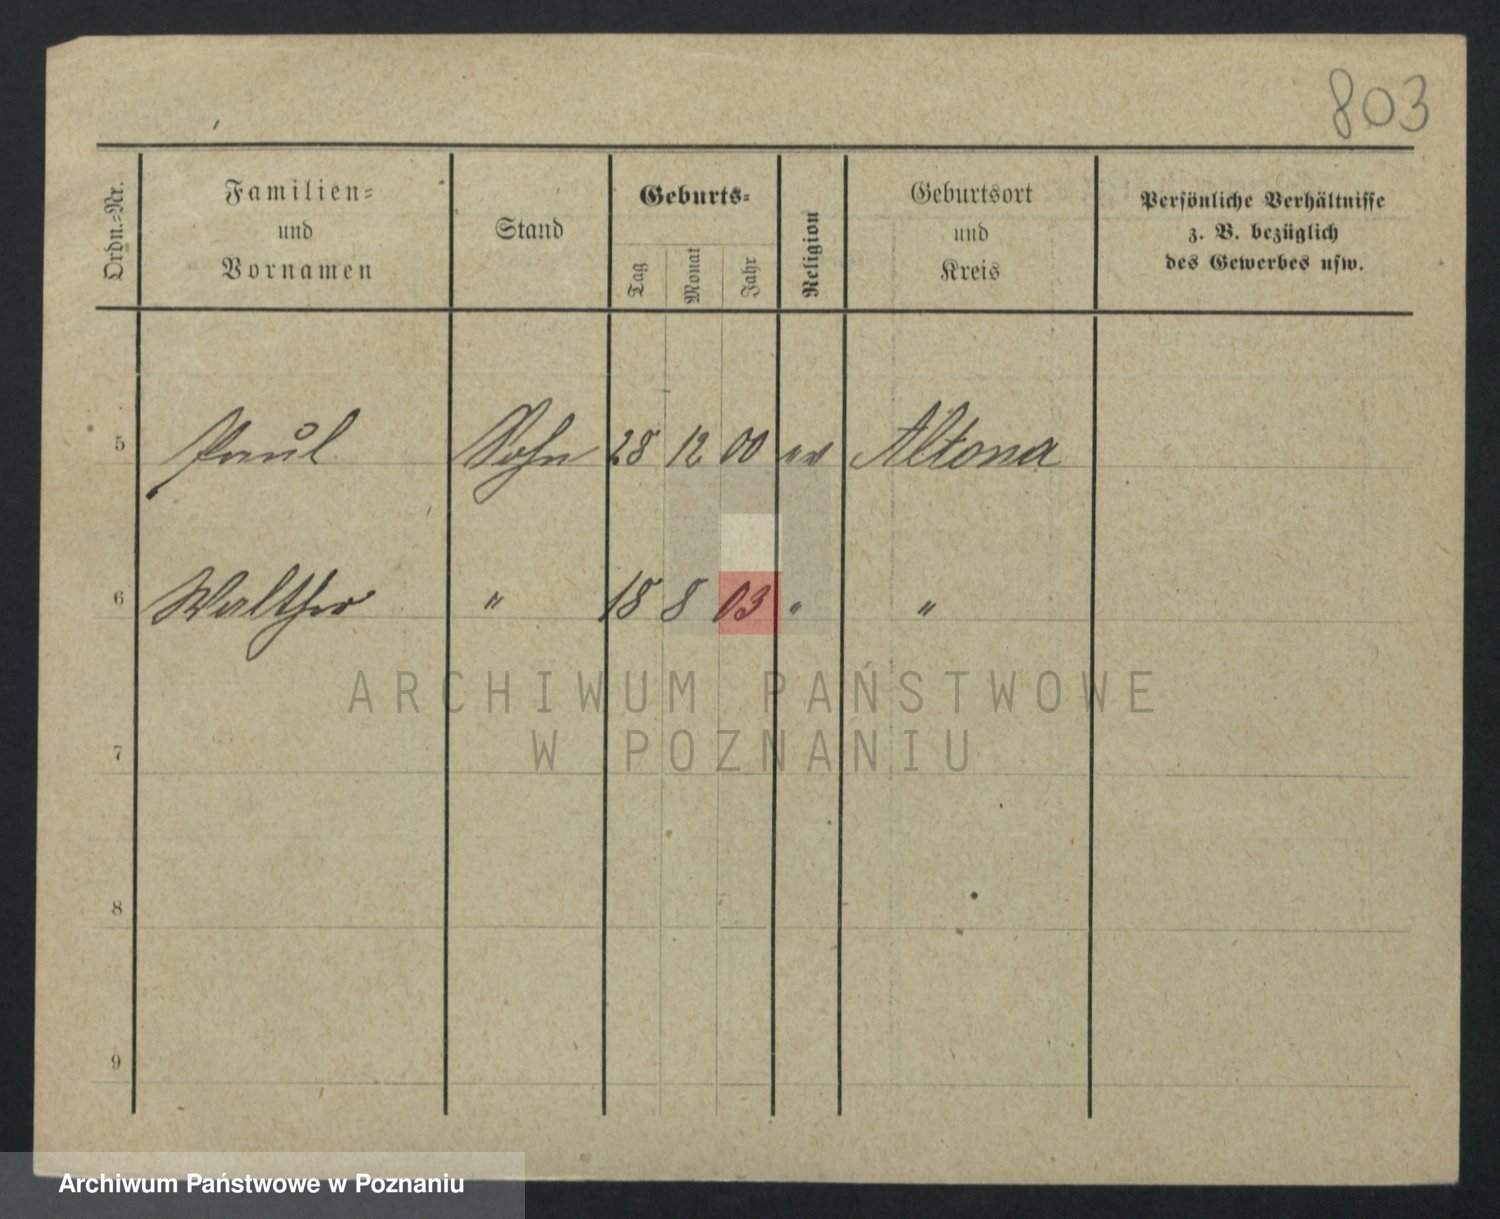 803
Ordn.=Nr.
Familien=
und
Vornamen
Stand
Geburts=
Tag
Monat
Jahr
Religion
Geburtsort
und
Kreis
Persönliche Verhältnisse
z. B. bezüglich
des Gewerbes usw.
5 Paul Sohn 28 12 00 ev Altona
6 Walther " 18 8 03 " "
ARCHIWUM PAŃSTWOWE
W POZNANIU
7
8
9
Archiwum Państwowe w Poznaniu